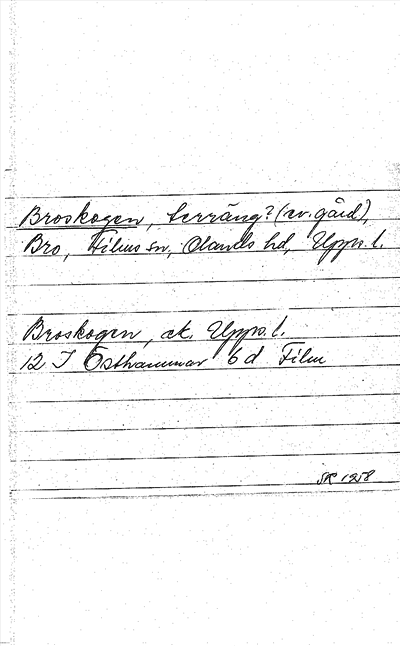 Broskogen, terräng? (ev. gård),
Bro, Films sn, Olands hd, Upps. l.
Broskogen, ek. Upps. l.
12 I Östhammar 6 d Film
SR 1958